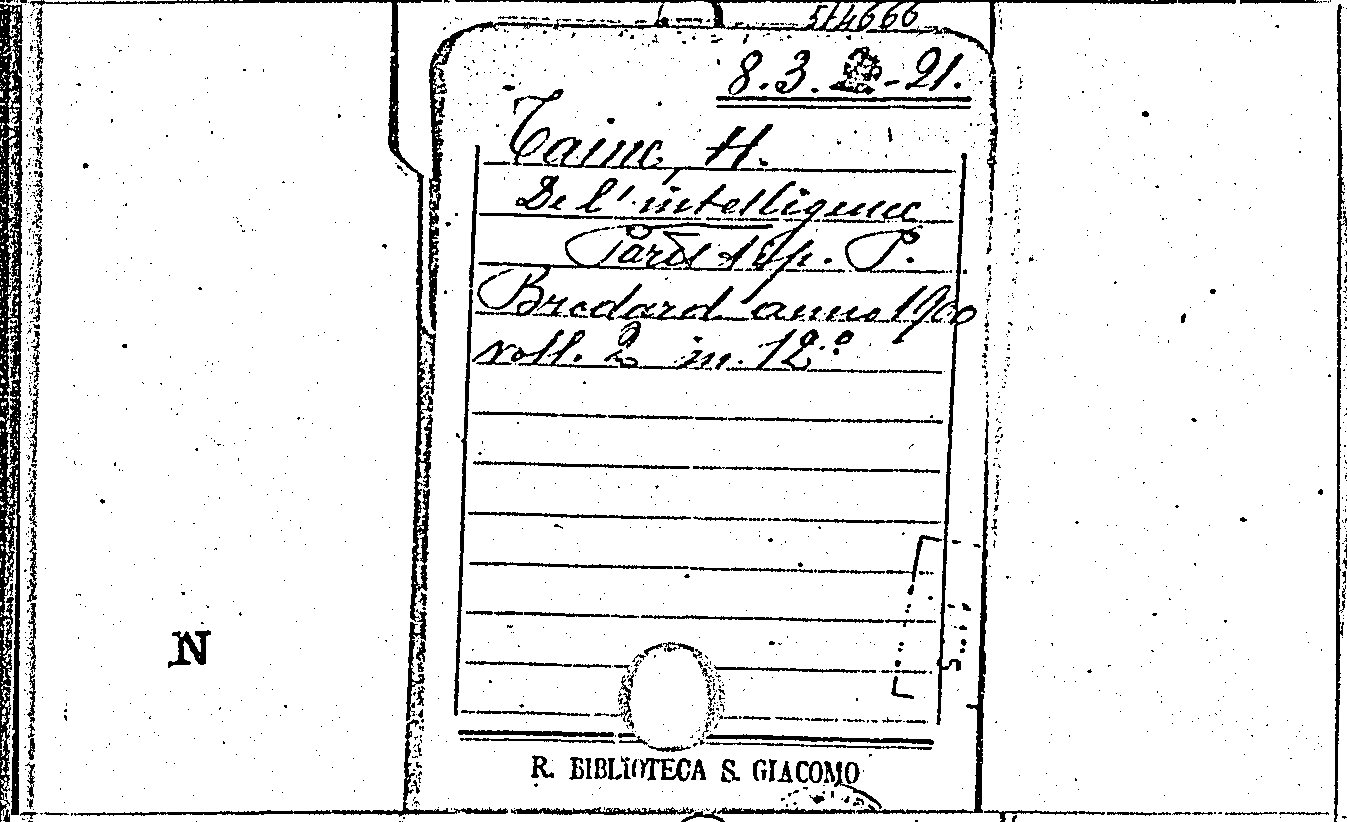 514666
8.3. -21.
Taine, H.
De l'intelligence
Paris tip. P.
Brodard anno 1900
voll. 2 in 12.º
N
R. BIBLIOTECA S. GIACOMO